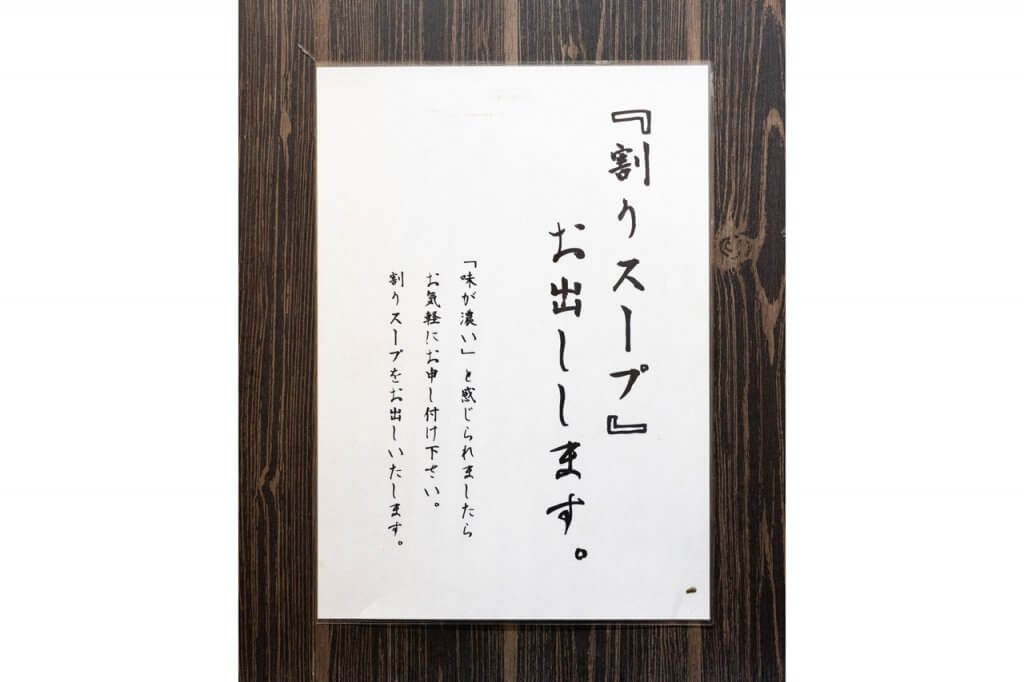 『割りスープ』
お出しします。
「味が濃い」と感じられましたら
お気軽にお申し付け下さい。
割りスープをお出しいたします。